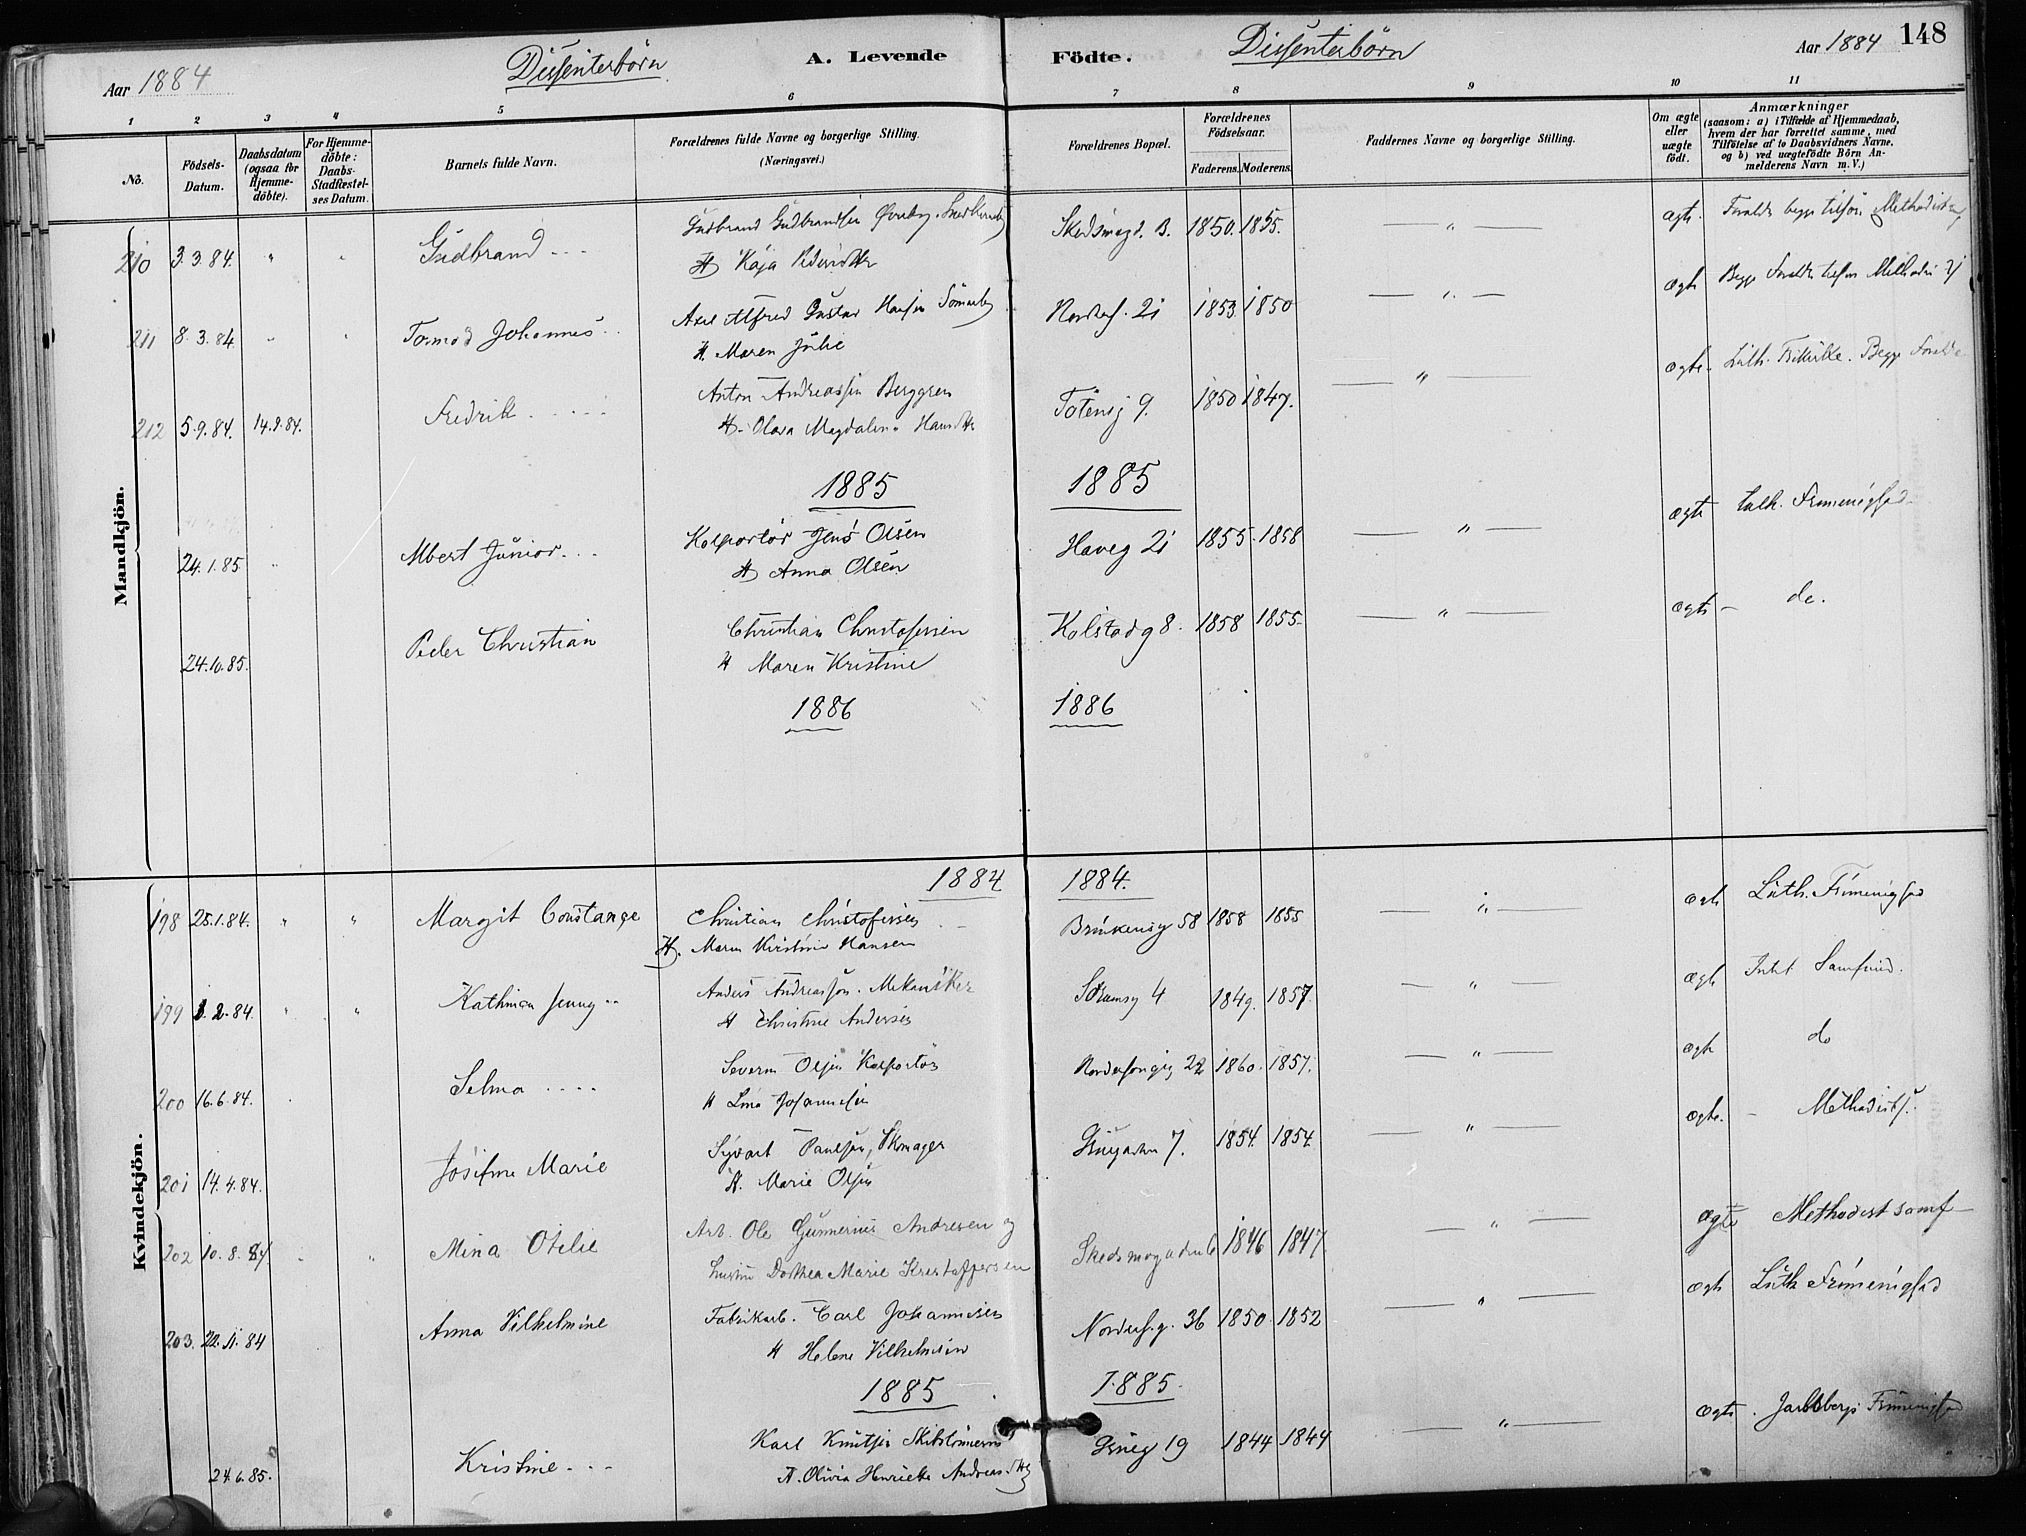 148
Aar 1884 Dissenterbörn A. Levende Födte. Dissenterbörn Aar 1884
1 2 3 4 5 6 7 8 9 10 11
No. Födsels-Datum. Daabsdatum (ogsaa for Hjemmedöbte). For Hjemmedöbte: Daabs-Stadfæstelses Datum. Barnets fulde Navn. Forældrenes fulde Navne og borgerlige Stilling. (Næringsvei.) Forældrenes Bopæl. Forældrenes Födselsaar. Faderens. Moderens. Faddernes Navne og borgerlige Stilling. Om ægte eller uægte födt. Anmærkninger (saasom: a) i Tilfælde af Hjemmedaab, hvem der har forrettet samme, med Tilföielse af to Daabsvidners Navne, og b) ved uægtefödte Börn Anmelderens Navn m. V.)
Mandkjön.
210 3.3.84. " " Gudbrand Gudbrand Gudbrandsen Snedker
H Kaja Skedsmogd. 1850. 1855. " ægte. begge Methodist
211 8.3.84. " " Johannes Axel Alfred Gustav Hansen
H. Maren Julie 21 1853 1850 " ægte Begge
212 5.9.84. 14.9.84. Fredrik Anton Andreassen Berggren
H. Olava Magdalene Tötensg 9. 1850 1847. " ægte Luth. Frikirke. Begge
1885 1885
24.1.85 " Albert Junior Kolportör Jens Olsen
H Anna Olsen Haveg 21 1855. 1858 " ægte Luth. Frimenighed
24.10.85. Peder Christian Christian Christofersen
H Maren Kristine Kolstadg 8. 1858 1855. " ægte do.
1886 1886
Kvindekjön.
1884 1884.
198 25.1.84. " " Margit Constance Christian Christofersen
H. Maren Kirstine Hansen Brinkensg 58 1858 1855 " ægte Luth. Frimenighed
199 1.2.84. " " Kathinca Jenny Anders Andreassen. Mekaniker
H Christine Andersen 4 1849. 1857 " ægte Samfund.
200 16.6.84. Selma Severin Olsen Kolportör
H Lina Johannesen 22 1860. 1857. " ægte do
201 14.4.84. Josefine Marie Sigvart Paulsen, Skomager
H. Marie Olsen 7. 1854. 1854. " ægte. Methodists.
202 10.8.84 " Mina Otelie Arb. Ole Gunnerius Andresen og
hustru Dorthea Marie Kristoffersen Skedsmogaden 6 1846 1847. " ægte Methodist samf
203. 22.11.84 Anna Vilhelmine Fabrikarb. Carl Johannesen
H Helene Vilhelmsen Norderh.g. 36 1850. 1852 " ægte Luth Frimenighed
1885 1885.
24.6.85. Kristine Karl Knutsen Skibstömmerm
H. Olivia Henriette Andreasdtr 19 1844 1844 " ægte. Jarlsbergs Frimenighed